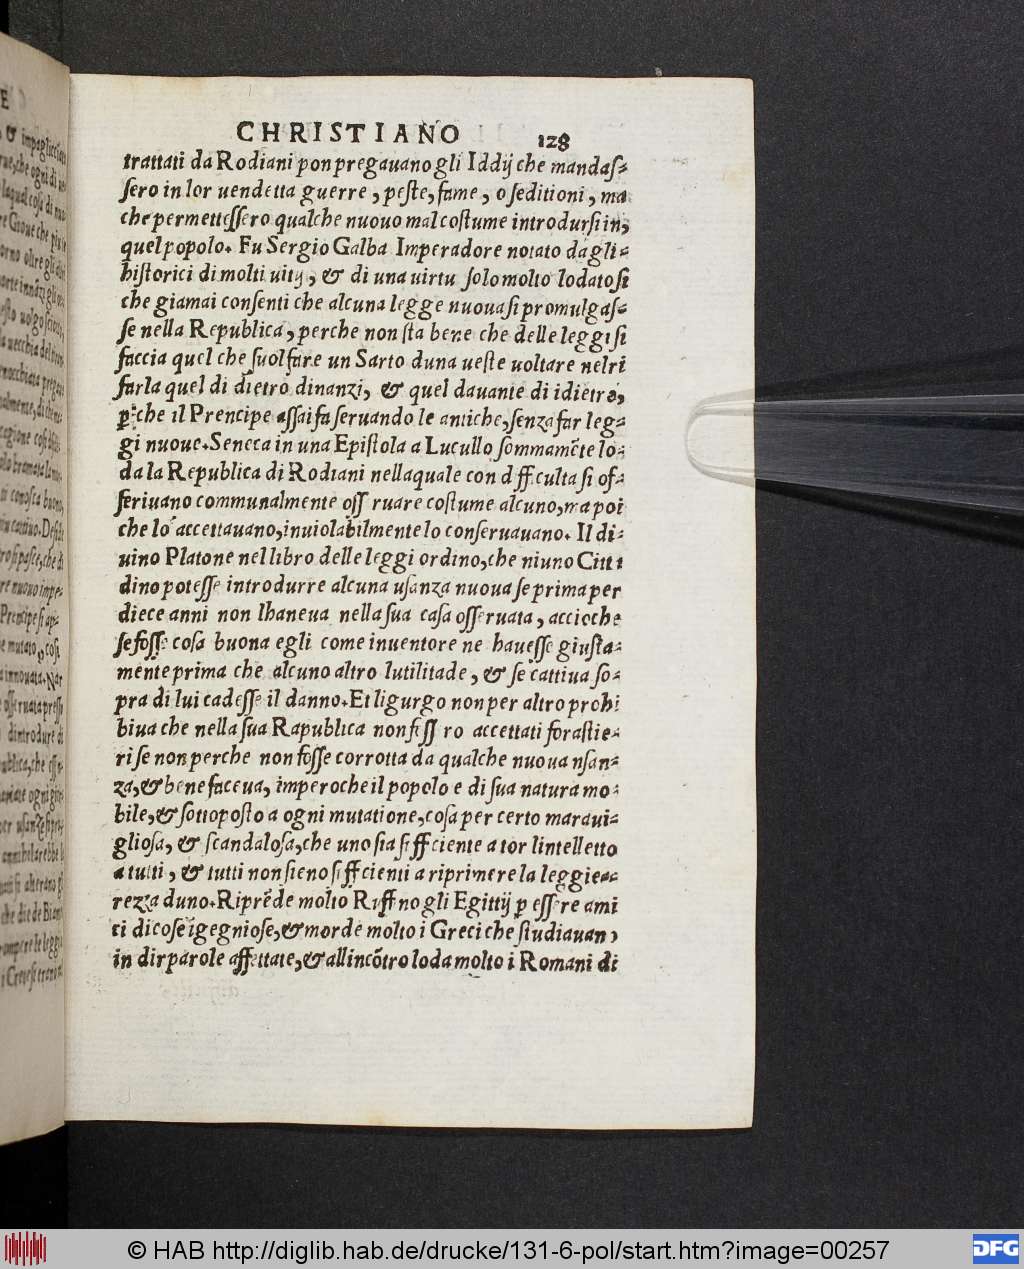 CHRISTIANO 128
trattati da Rodiani pon pregauano gli Iddij che mandaſ⸗
ſero in lor uendetta guerre, peſte, fame, o ſeditioni, ma
che permetteſſero qualche nuouo mal coſtume introdurſi in,
quel popolo. Fu Sergio Galba Imperadore notato dagli⸗
hiſtorici di molti uitij, & di una uirtu ſolo molto lodato ſi
che giamai conſenti che alcuna legge nuoua ſi promulgaſ⸗
ſe nella Republica, perche non ſta bene che delle leggi ſi
faccia quel che ſuol fare un Sarto duna ueſte uoltare nel ri
farla quel di dietro dinanzi, & quel dauante di idietro,
p̱che il Prencipe aſſai fa ſeruando le antiche, ſenza far leg⸗
gi nuoue. Seneca in una Epiſtola a Lucullo ſommamẽte lo⸗
da la Republica di Rodiani nellaquale con dfficulta ſi of⸗
feriuano communalmente oſſ ruare coſtume alcuno, ma poi
che lo accettauano, inuiolabilmente lo conſeruauano. Il di⸗
uino Platone nel libro delle leggi ordino, che niuno Citt
dino poteſſe introdurre alcuna uſanza nuoua ſe prima per
diece anni non lhaneua nella ſua caſa oſſeruata, accioche
ſe foſſe coſa buona egli come inuentore ne haueſſe giuſta⸗
mente prima che alcuno altro lutilitade, & ſe cattiua ſo⸗
pra di lui cadeſſe il danno. Et ligurgo non per altro prohi
biua che nella ſua Rapublica non fiſſ ro accettati foraſtie⸗
ri ſe non perche non foſſe corrotta da qualche nuoua nſan⸗
za, & bene faceua, imperoche il popolo e di ſua natura mo⸗
bile, & ſottopoſto a ogni mutatione, coſa per certo maraui⸗
glioſa, & ſcandaloſa, che uno ſia ſifficiente a tor lintelletto
a tutti, & tutti non ſieno ſifficienti a riprimere la leggie⸗
rezza duno. Riprẽde molto Riffno gli Egittij p̱ eſſere ami
ci di coſe igegnioſe, & morde molto i Greci che ſtudiauan,
in dir parole affettate, & allincõtro loda molto i Romani di
© HAB http://diglib.hab.de/drucke/131-6-pol/start.htm?image=00257
DFG